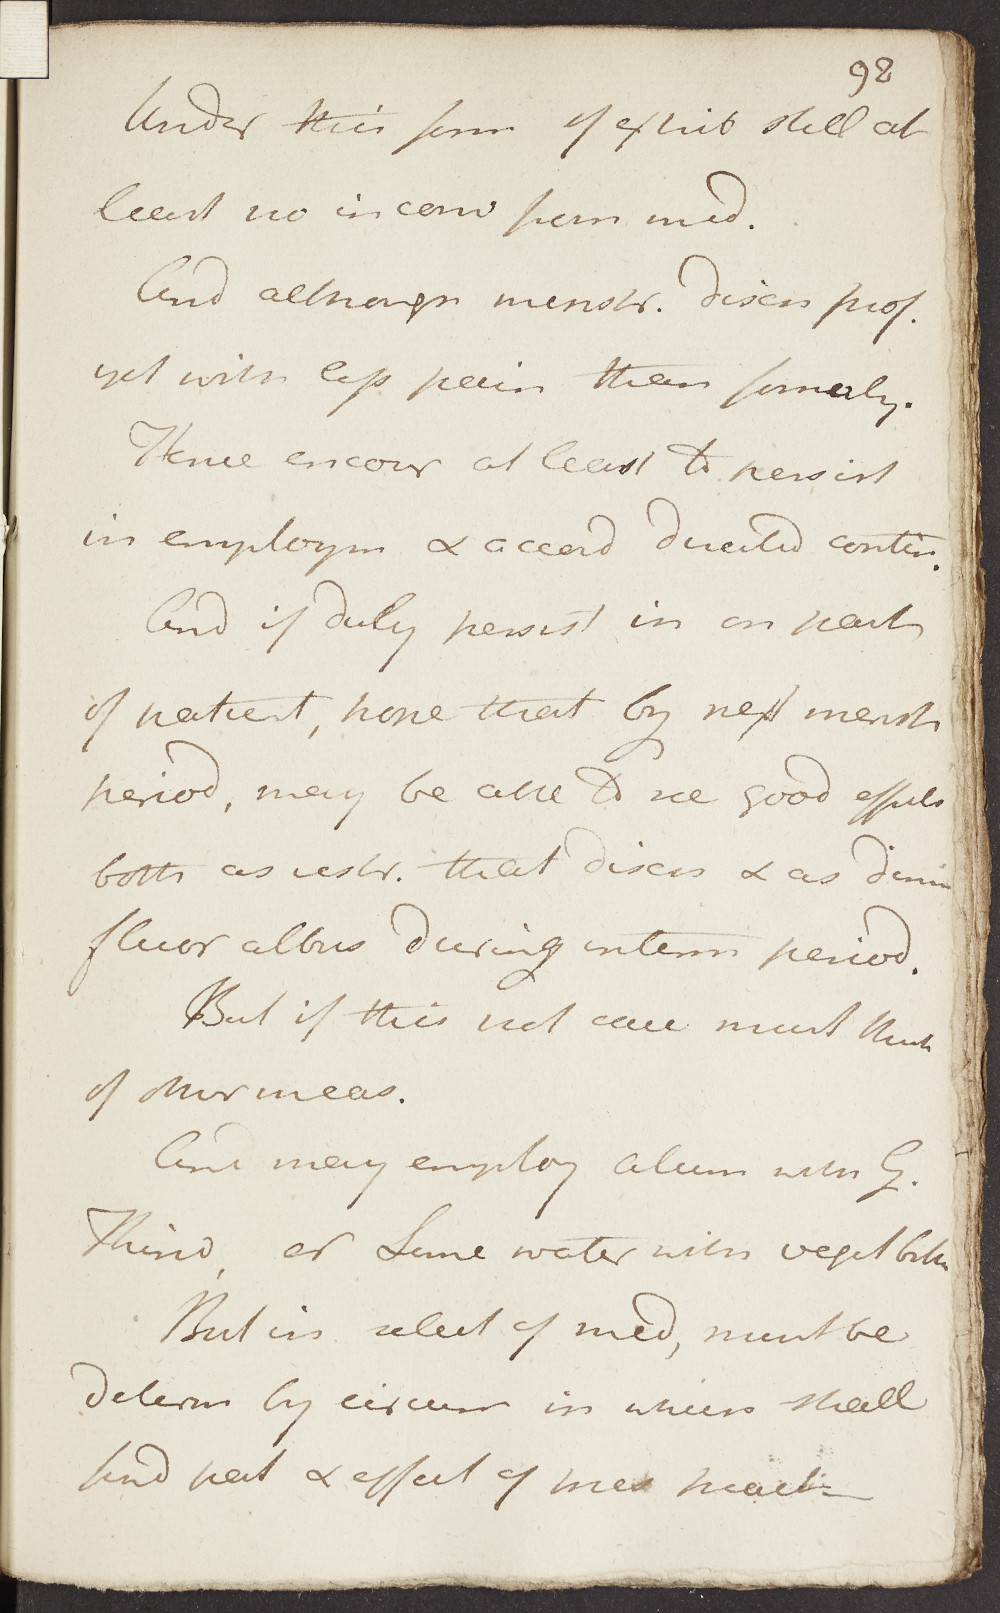 98
Under this form of exhib still at
least no inconv from med.
And although menstr. disch prof.
yet with less pain than formerly.
Hence encour at least to persist
in employm & accord directed contin.
And if duly persist in on part
of patient, hope that by next menstr
period, may be able to see good effects
both as restr. that disch & as dimin
fluor albus during interm period.
But if this not case must think
of other meas.
And may employ alum with G.
Kino, or Lime water with veget bitter
But in select of med, must be
determ by circum in which shall
find pat & effect of pres pract